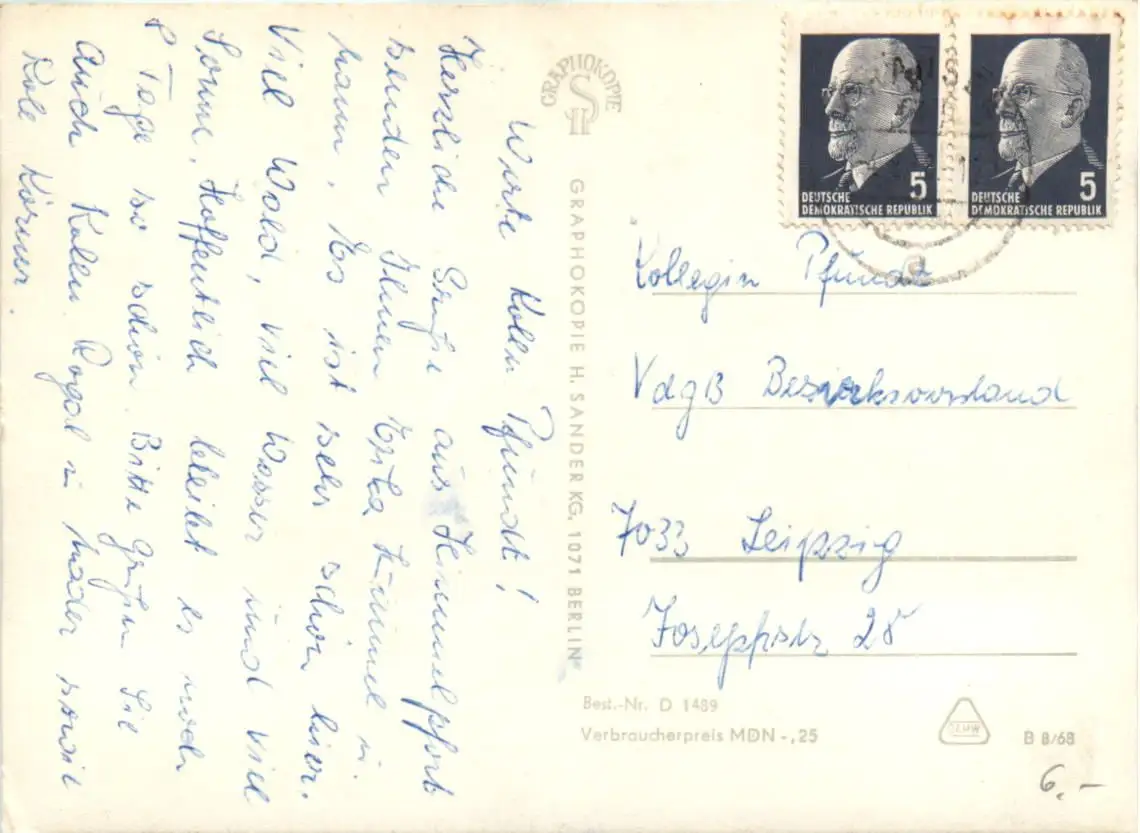 Werte Kolln Pfundt!
Herzliche Grüße aus Himmelpfort
senden Ihnen Erika Kümmel u.
mann. Es ist sehr schön hier.
Viel Wald, viel Wasser und viel
Sonne. Hoffentlich bleibt es noch
8 Tage so schön. Bitte grüßen Sie
auch Kolln Rogal u. Mader sowie
Koll Körner.
GRAPHOKOPIE
GRAPHOKOPIE H. SANDER KG, 1071 BERLIN
5
DEUTSCHE
DEMOKRATISCHE REPUBLIK
5
DEUTSCHE
DEMOKRATISCHE REPUBLIK
Kollegin Pfundt
VdgB Bezirksvorstand
7033 Leipzig
Josephstr 28
Best.-Nr. D 1489
Verbraucherpreis MDN -,25
B 8/68
6.-